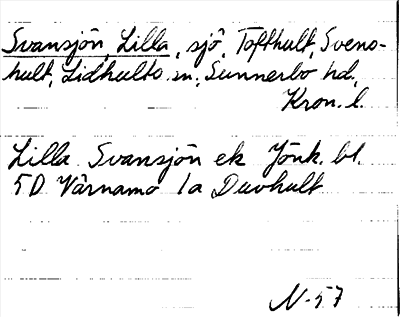 Svansjön, Lilla, sjö, Tofthult, Svens-
hult, Lidhults sn. Sunnerbo hd.
Kron. l.
Lilla Svansjön ek Jönk. bl.
5D Värnamo 1a Duvhult
N-57